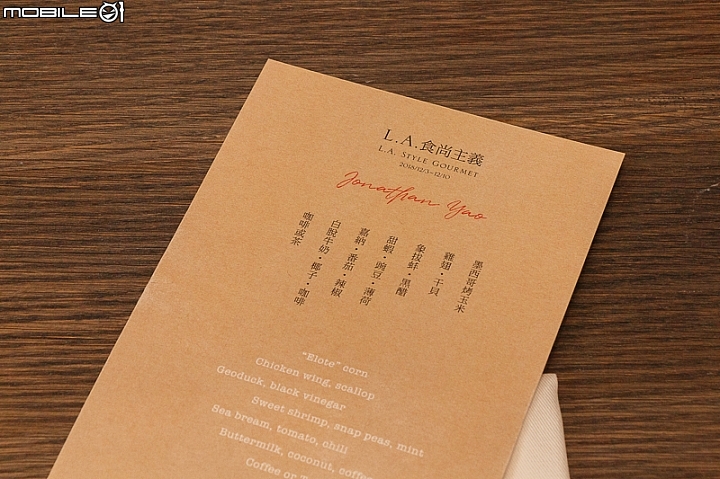 MOBILE01
L.A.食尚主義
L.A. STYLE GOURMET
2018/12/3-12/10
Jonathan Yao
墨西哥烤玉米
雞翅・干貝
象拔蚌・黑醋
甜蝦・豌豆・薄荷
嘉納・番茄・辣椒
白脫牛奶・椰子・咖啡
咖啡或茶
"Elote" corn
Chicken wing, scallop
Geoduck, black vinegar
Sweet shrimp, snap peas, mint
Sea bream, tomato, chili
Buttermilk, coconut, coffee
Coffee or T